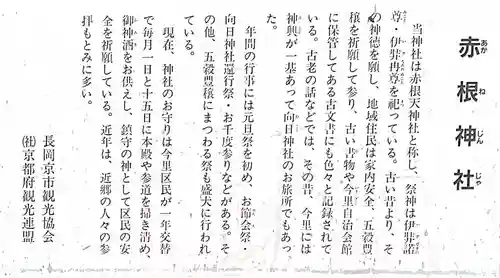 赤根神社
あかねじんじゃ
当神社は赤根天神社と称し、祭神は伊弉諾
尊・伊弉冉尊を祀っている。古い昔より、そ
の神徳を願し、地域住民は家内安全、五穀豊
穣を祈願して参り、古い書物や今里自治会館
に保管してある古文書にも色々と記録されて
いる。古老の話などでは、その昔、今里には
神輿が一基あって向日神社のお旅所でもあっ
た。
年間の行事には元旦祭を初め、お節会祭・
向日神社還行祭・お千度参りなどがある。そ
の他、五穀豊穣にまつわる祭も盛大に行われ
ている。
現在、神社のお守りは今里区民が一年交替
で毎月一日と十五日に本殿や参道を掃き清め、
御神酒をお供えし、鎮守の神として区民の安
全を祈願している。近年は、近郷の人々の参
拝もとみに多い。
長岡京市観光協会
㈳京都府観光連盟